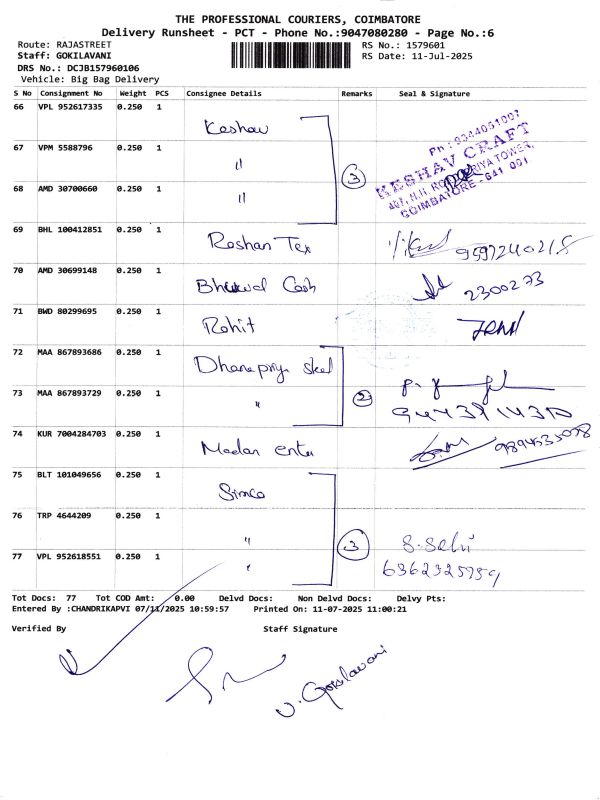 THE PROFESSIONAL COURIERS, COIMBATORE
Delivery Runsheet - PCT - Phone No.:9047080280 - Page No.:6
Route: RAJASTREET RS No.: 1579601
Staff: GOKILAVANI RS Date: 11-Jul-2025
DRS No.: DCJB157960106
Vehicle: Big Bag Delivery
S No Consignment No Weight PCS Consignee Details Remarks Seal & Signature
66 VPL 952617335 0.250 1 Keshav
67 VPM 5588796 0.250 1 "
3
Ph: 9344051007
KESHAV CRAFT
TOWER,
COIMBATORE - 641 001
68 AMD 30700660 0.250 1 "
69 BHL 100412851 0.250 1 Roshan Tex
70 AMD 30699148 0.250 1 2300273
71 BWD 80299695 0.250 1 Rohit
72 MAA 867893686 0.250 1 Dhanapriya
73 MAA 867893729 0.250 1 " 2
74 KUR 7004284703 0.250 1 Madan
75 BLT 101049656 0.250 1 Simco
76 TRP 4644209 0.250 1 " 3
77 VPL 952618551 0.250 1 " 6362325959
Tot Docs: 77 Tot COD Amt: 0.00 Delvd Docs: Non Delvd Docs: Delvy Pts:
Entered By :CHANDRIKAPVI 07/11/2025 10:59:57 Printed On: 11-07-2025 11:00:21
Verified By Staff Signature
v. Gokilavani